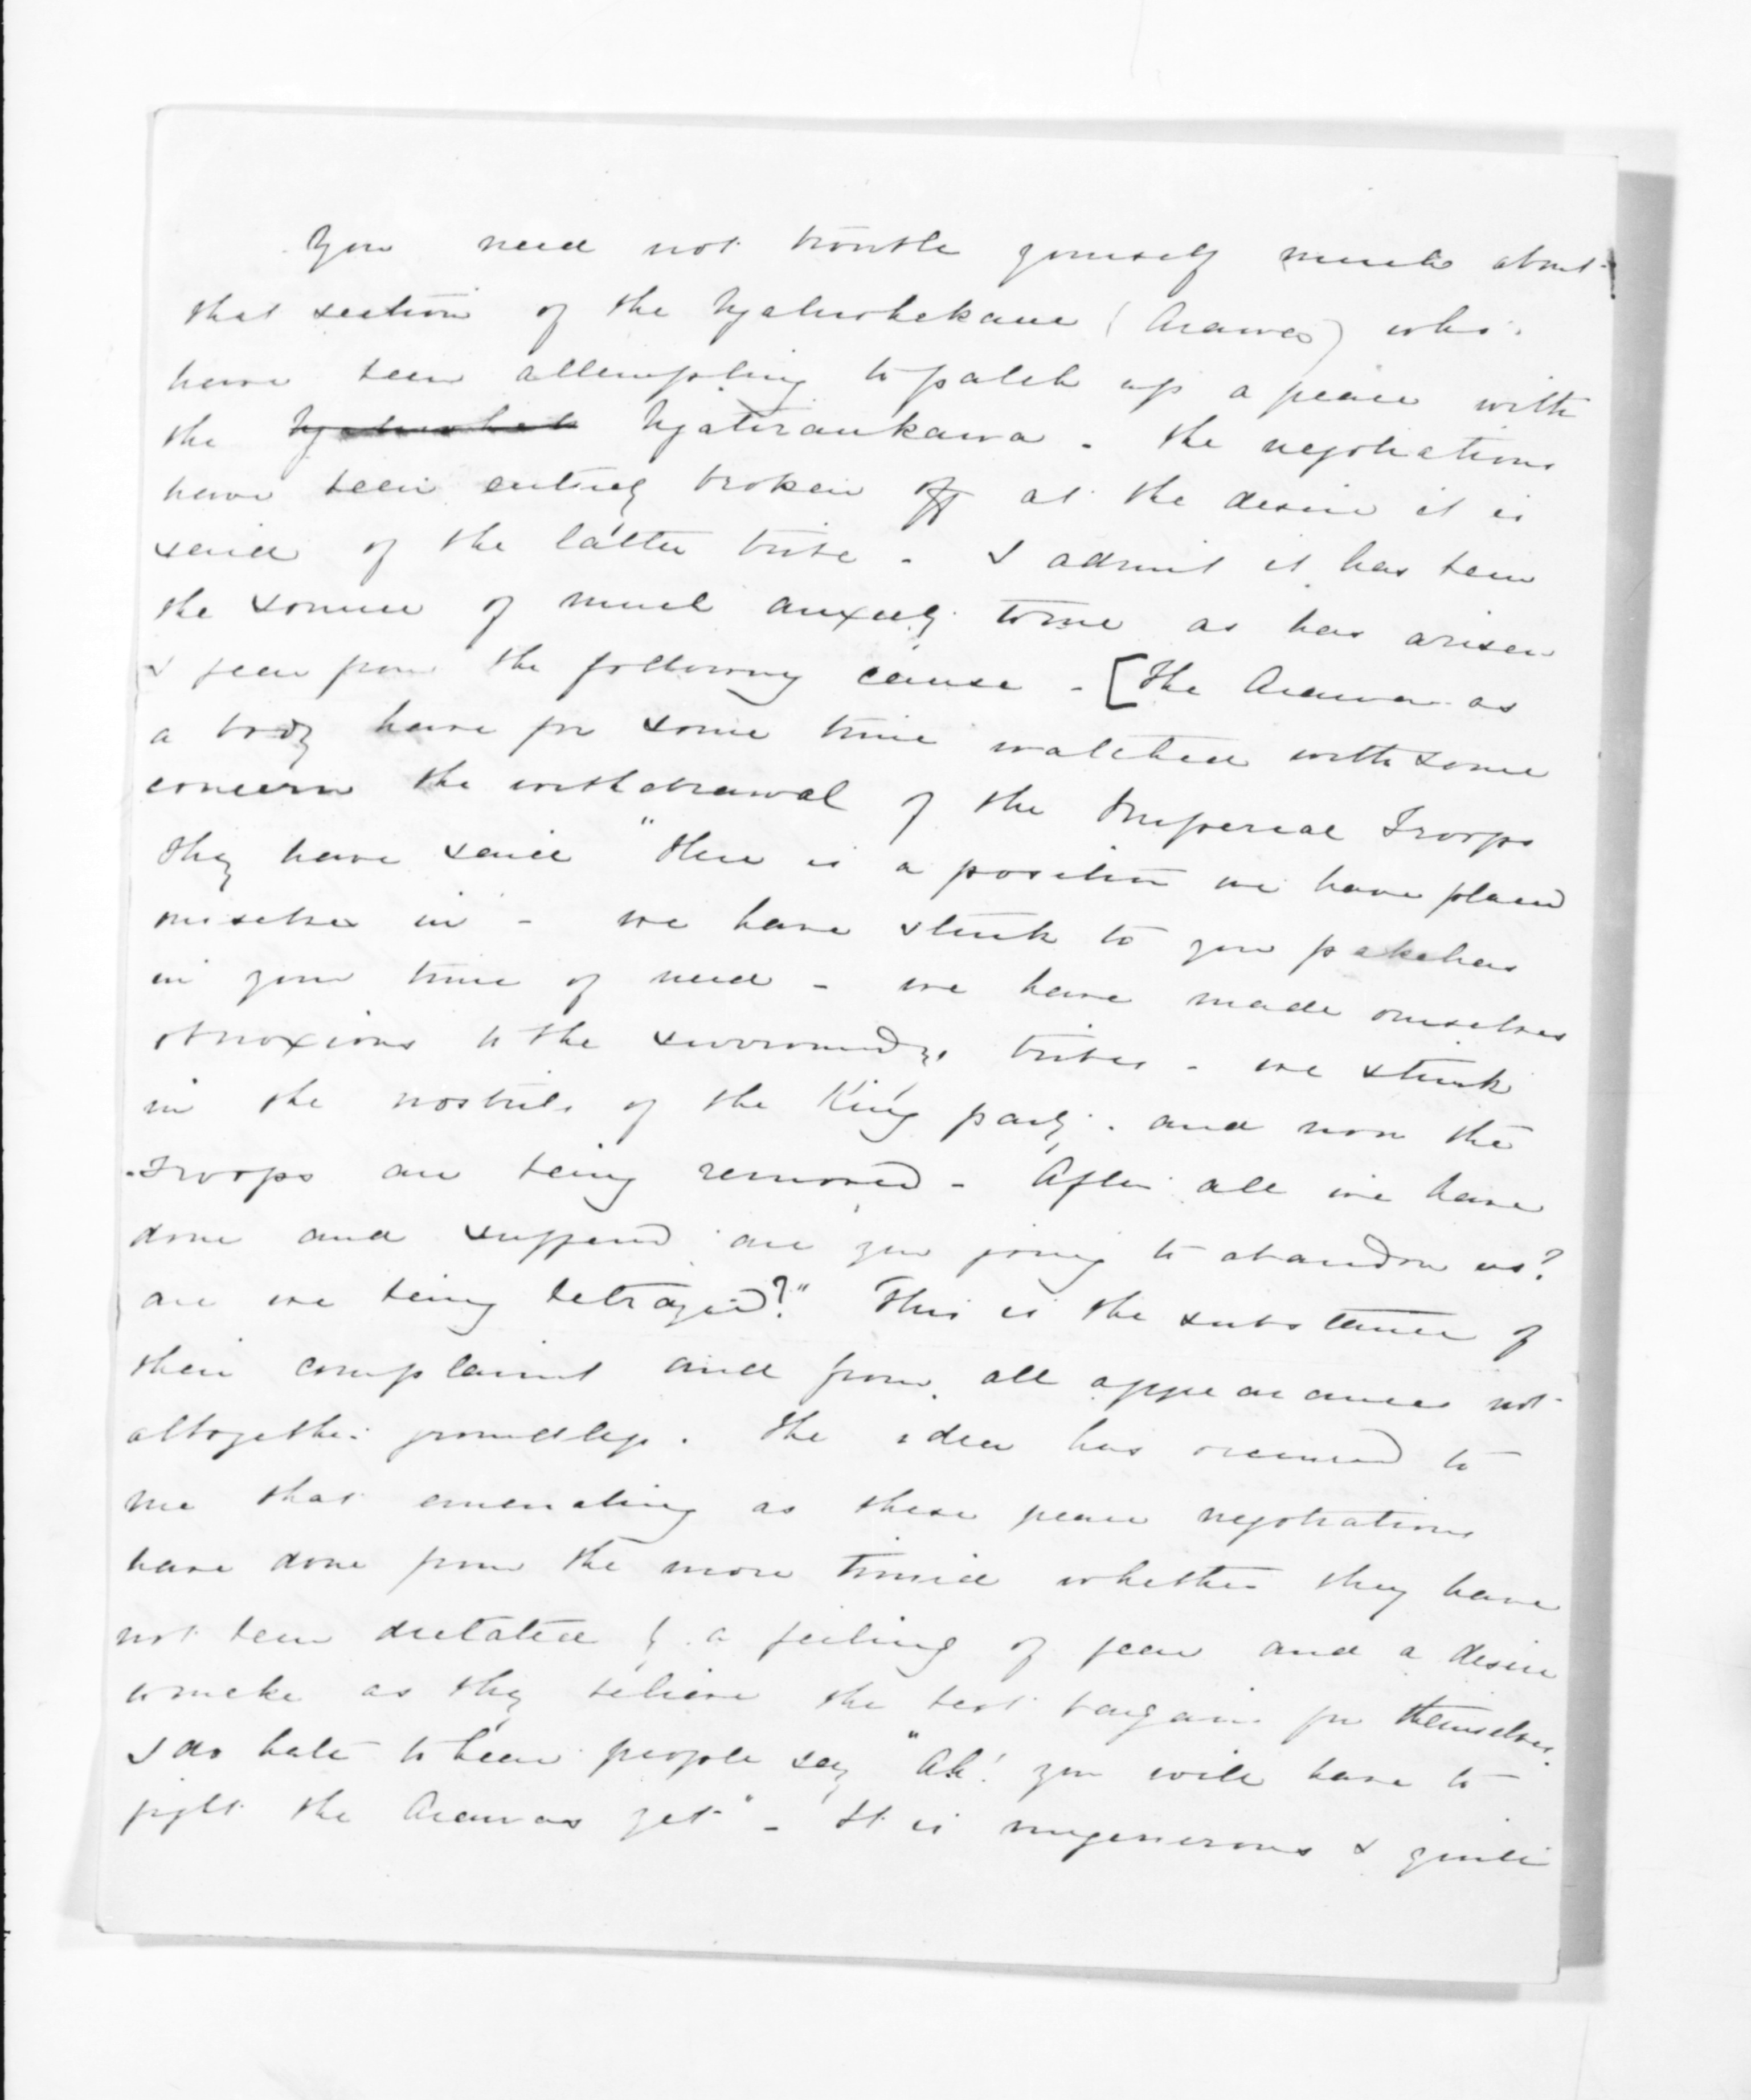 You need not trouble yourself much about
that section of the Ngatiwhakaue (Arawas) who
have been attempting to patch up a peace with
the Ngatiraukawa - the negotiations
have been entirely broken off at the desire it is
said of the latter tribe - I admit it has been
the source of much anxiety to me as has arisen
I fear from the following cause - [The Arawa as
a body have for some time watched with some
concern the withdrawal of the Imperial Troops
They have said "Here is a position we have placed
ourselves in - we have stuck to you pakehas
in your time of need - we have made ourselves
obnoxious to the surroundg. tribes - we stink
in the nostrils of the King party. and now the
Troops are being removed - After all we have
done and suffered are you going to abandon us?
are we being betrayed?" This is the substance of
their complaint and from all appearances not
altogether groundless. The idea has occurred to
me that emenating as these peace negotiations
have done from the more timid whether they have
not been dictated by a feeling of fear and a desire
to make as they believe the best bargain for themselves.
I do hate to hear people say "Ah! you will have to
fight the Arawas yet" - It is ungenerous & quite